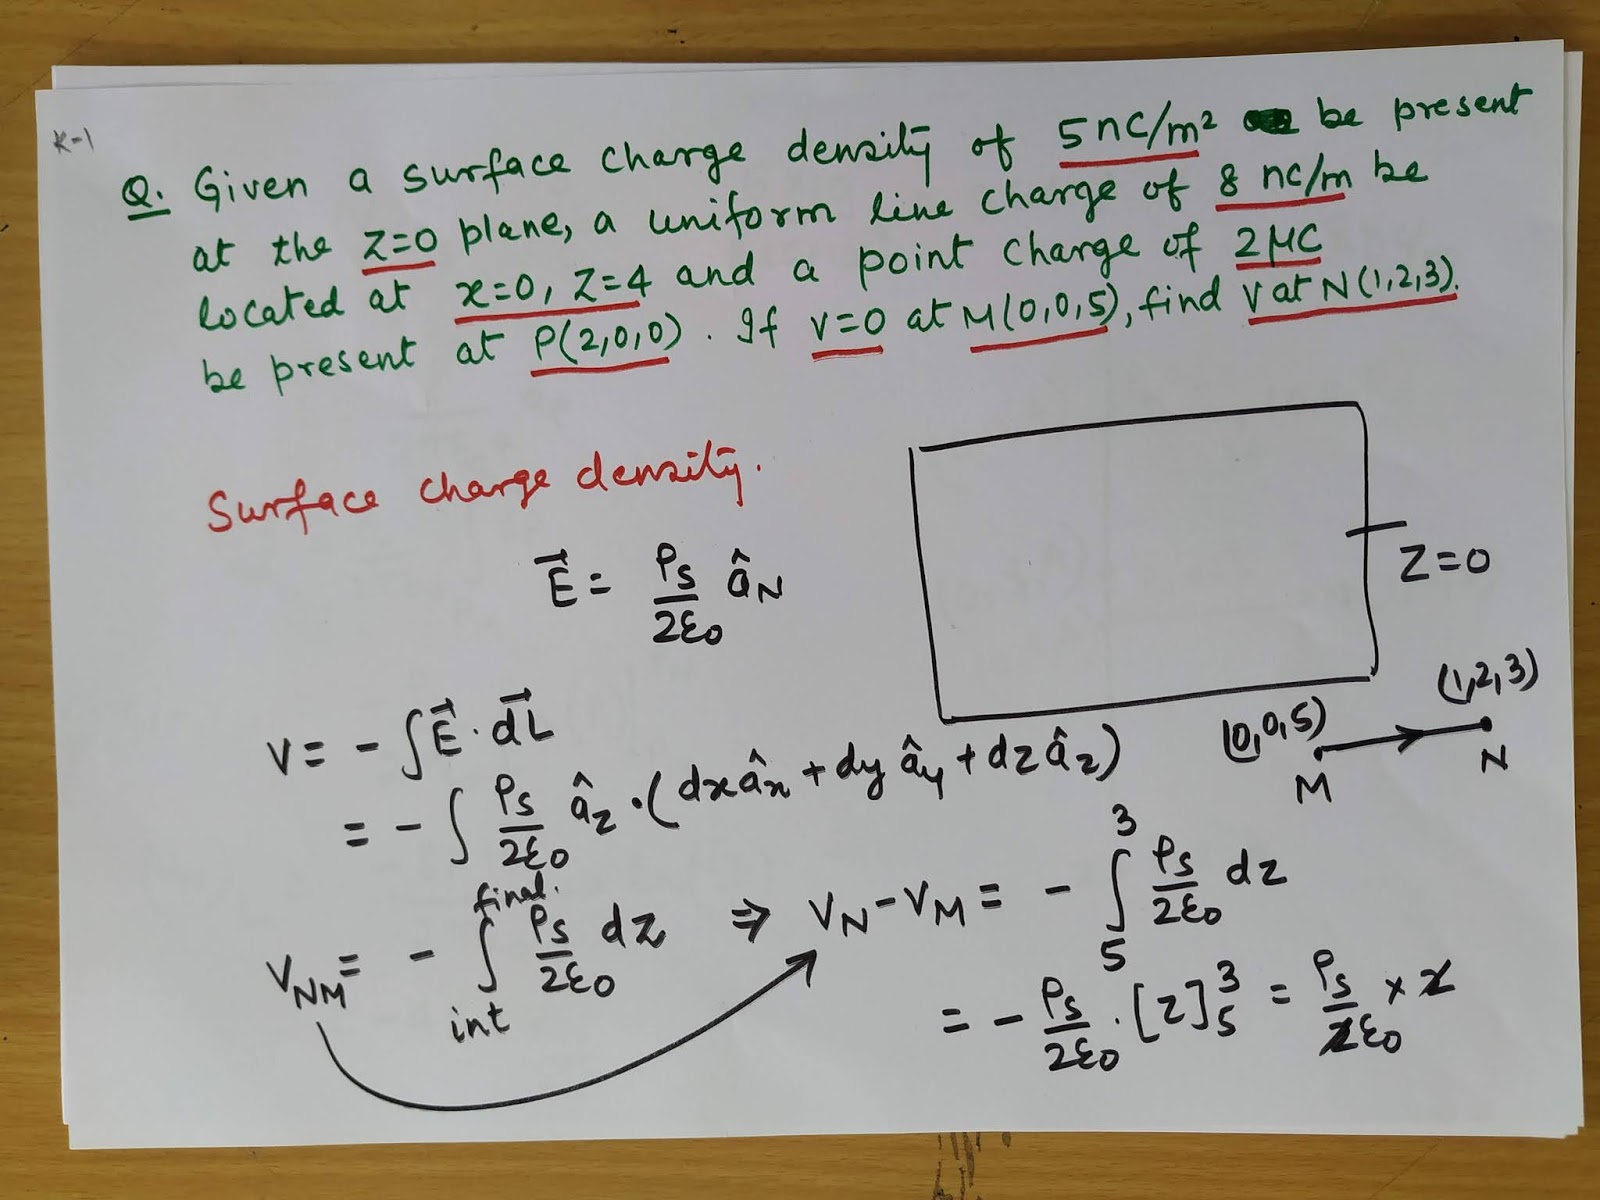 K-1
Q. Given a surface charge density of 5nC/m² be present
at the Z=0 plane, a uniform line charge of 8 nC/m be
located at x=0, Z=4 and a point charge of 2μC
be present at P(2,0,0). If V=0 at M(0,0,5), find V at N(1,2,3).
Surface charge density.
E⃗ = ρs/2ε₀ âN
Z=0
(0,0,5)
M
(1,2,3)
N
V = - ∫E⃗ · dL⃗
= - ∫ ρs/2ε₀ âz · (dxâx + dyây + dzâz)
VNM = - ∫_int^final. ρs/2ε₀ dz ⇒ VN - VM = - ∫_5^3 ρs/2ε₀ dz
= - ρs/2ε₀ · [z]_5^3 = ρs/2ε₀ × 2